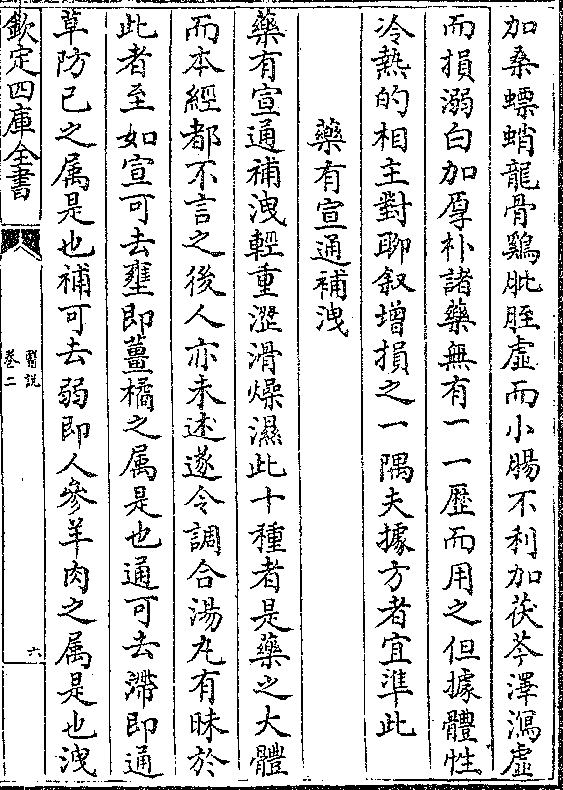 加桑螵蛸龍骨鷄肶胵虛而小腸不利加茯苓澤瀉虛
而損溺白加厚朴諸藥無有一一歷而用之但據體性
冷熱的相主對聊叙增損之一隅夫據方者宜準此
藥有宣通補洩
藥有宣通補洩輕重澁滑燥濕此十種者是藥之大體
而本經都不言之後人亦未述遂令調合湯丸有昧於
此者至如宣可去壅即薑橘之属是也通可去滯即通
草防己之属是也補可去弱即人參羊肉之属是也洩
欽定四庫全書
醫説
卷二
六